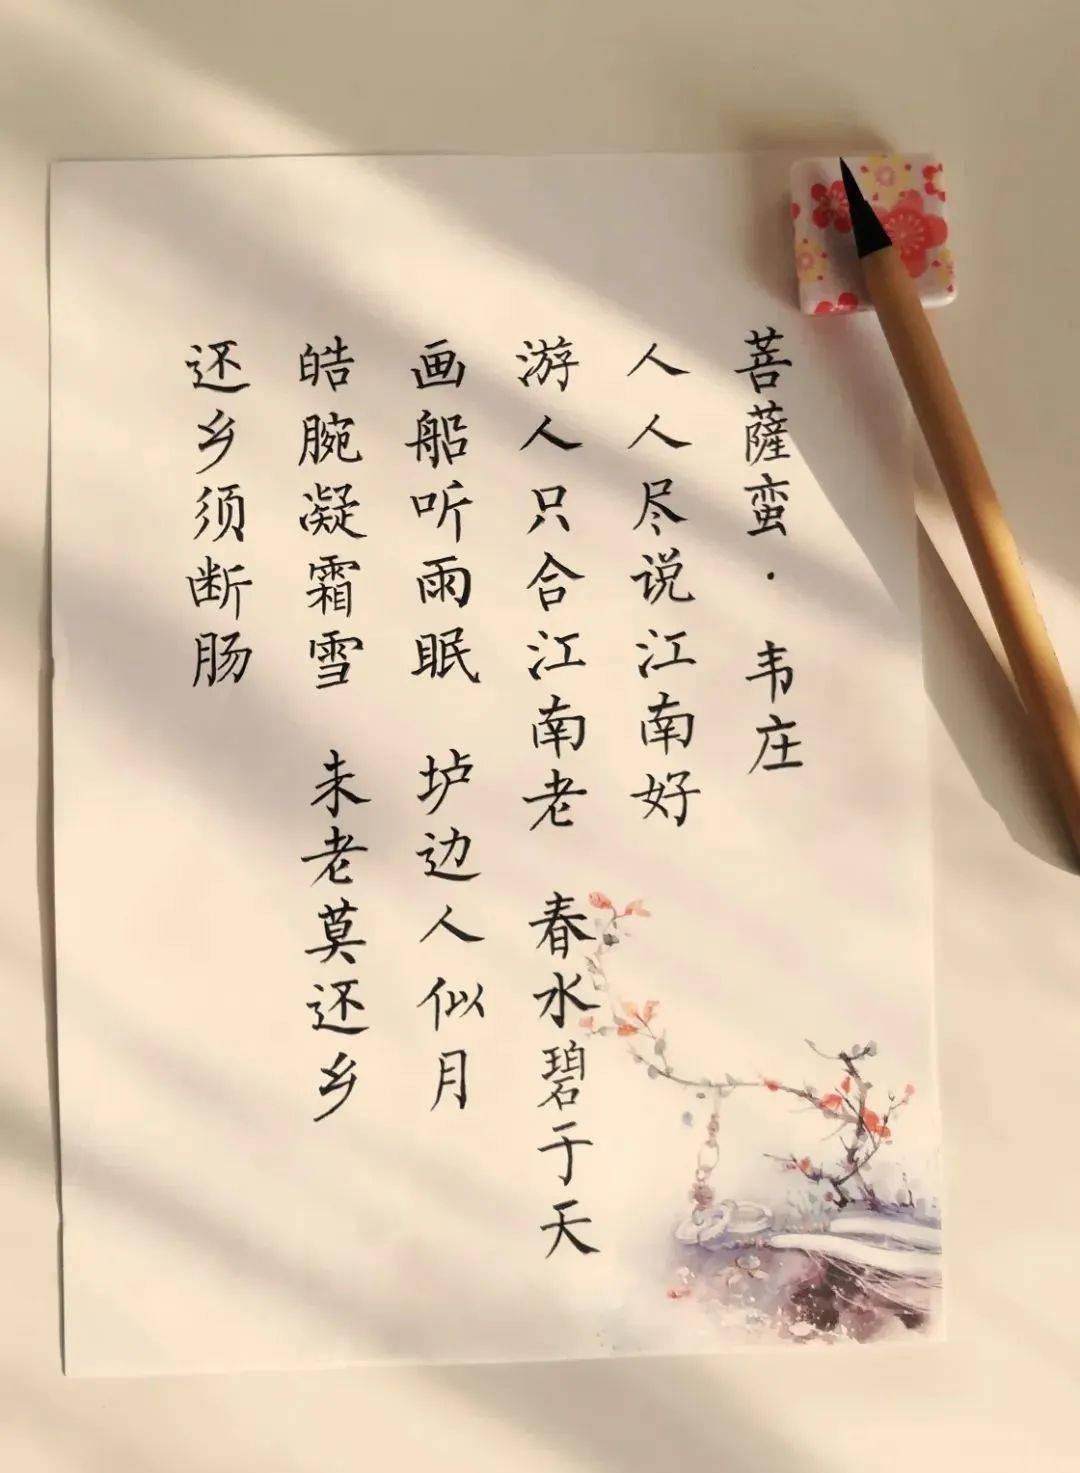 菩薩蛮·韦庄
人人尽说江南好
游人只合江南老 春水碧于天
画船听雨眠 垆边人似月
皓腕凝霜雪 未老莫还乡
还乡须断肠